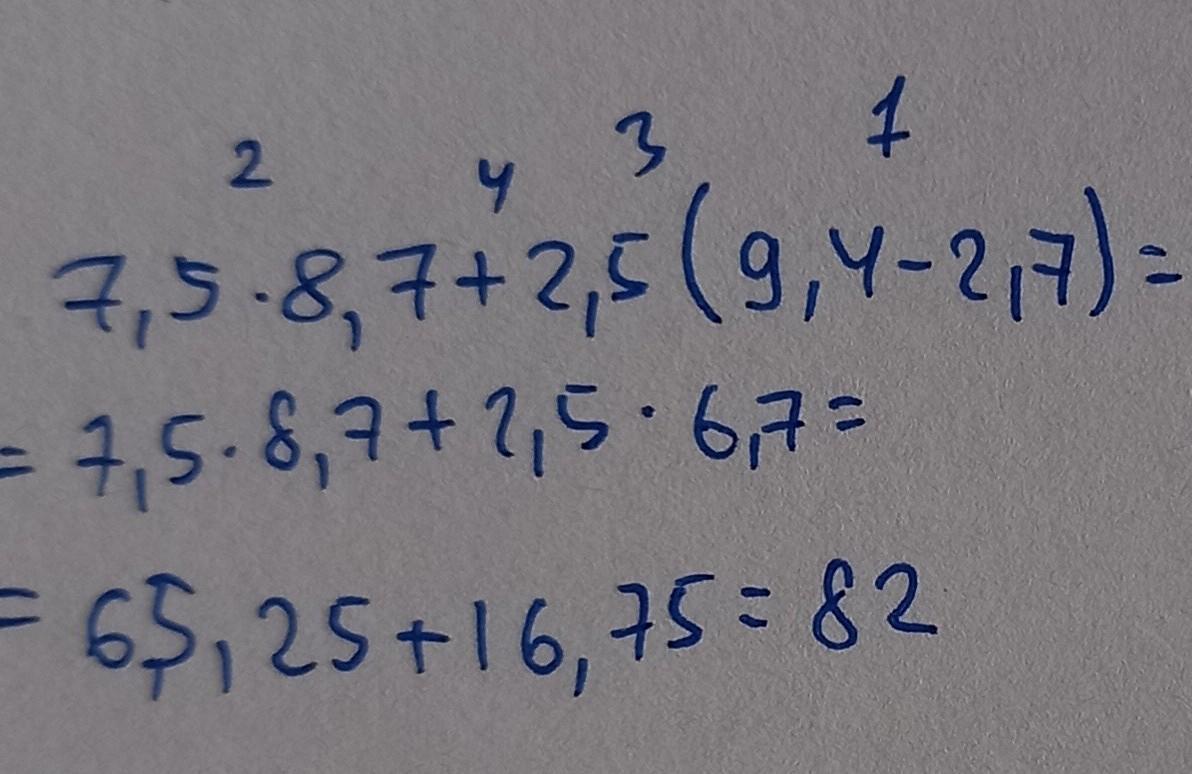 2 4 3 1
7,5·8,7+2,5(9,4-2,7)=
=7,5·8,7+2,5·6,7=
=65,25+16,75=82